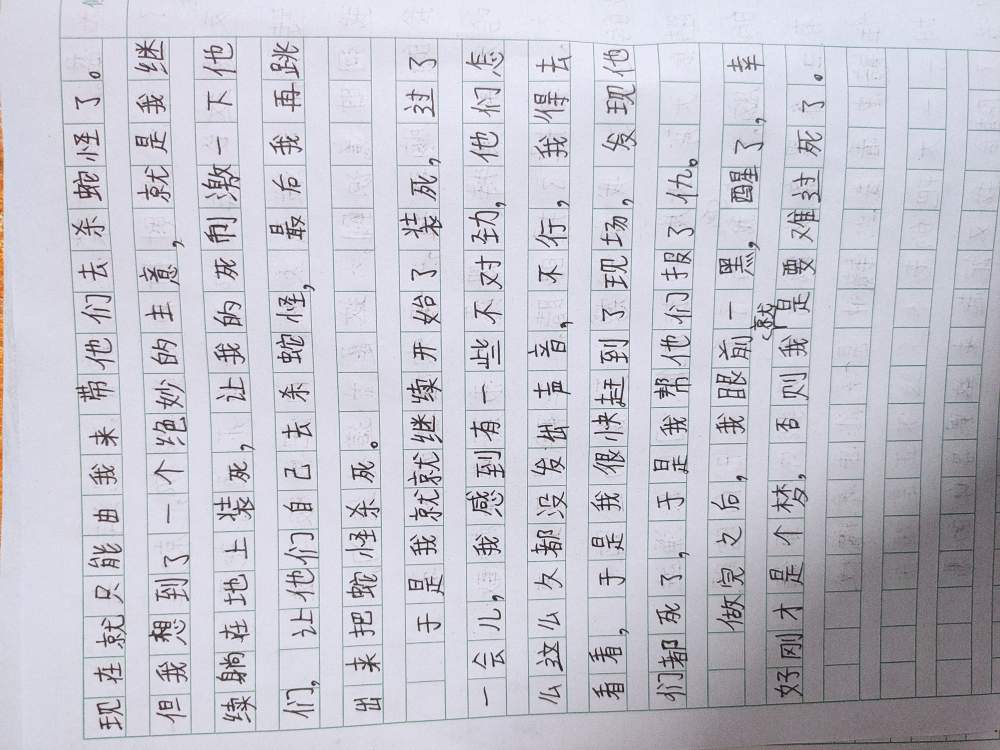 现在就只能由我来带他们去杀蛇怪了。
但我想到了一个绝妙的主意，就是我继
续躺在地上装死，让我的死刺激一下他
们，让他们自己去杀蛇怪，最后我再跳
出来把蛇怪杀死。
于是我就就继续开始了装死，过了
一会儿，我感到有一些不对劲，他们怎
么这么久都没发出声音，不行，我得去
看看，于是我很快赶到了现场，发现他
们都死了，于是我帮他们报了仇。
做完之后，我眼前一黑，醒了，幸
好刚才是个梦，否则我就是要难过死了。